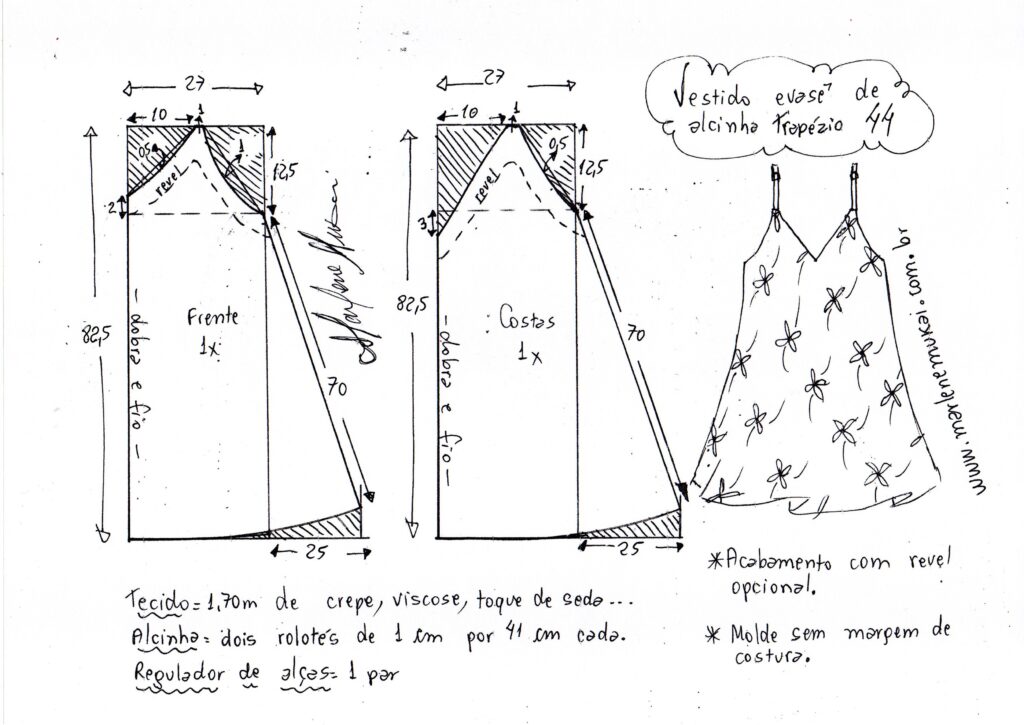 Vestido evasê de
alcinha Trapézio 44
27
10
1
0,5
1
revel
12,5
2
82,5
- dobra e fio -
Frente
1x
70
25
Marlene Mukai
27
10
1
0,5
revel
12,5
3
82,5
- dobra e fio -
Costas
1x
70
25
www.marlenemukai.com.br
Tecido= 1,70m de crepe, viscose, toque de seda...
Alcinha= dois rolotês de 1 cm por 41 cm cada.
Regulador de alças= 1 par
*Acabamento com revel
opcional.
* Molde sem margem de
costura.